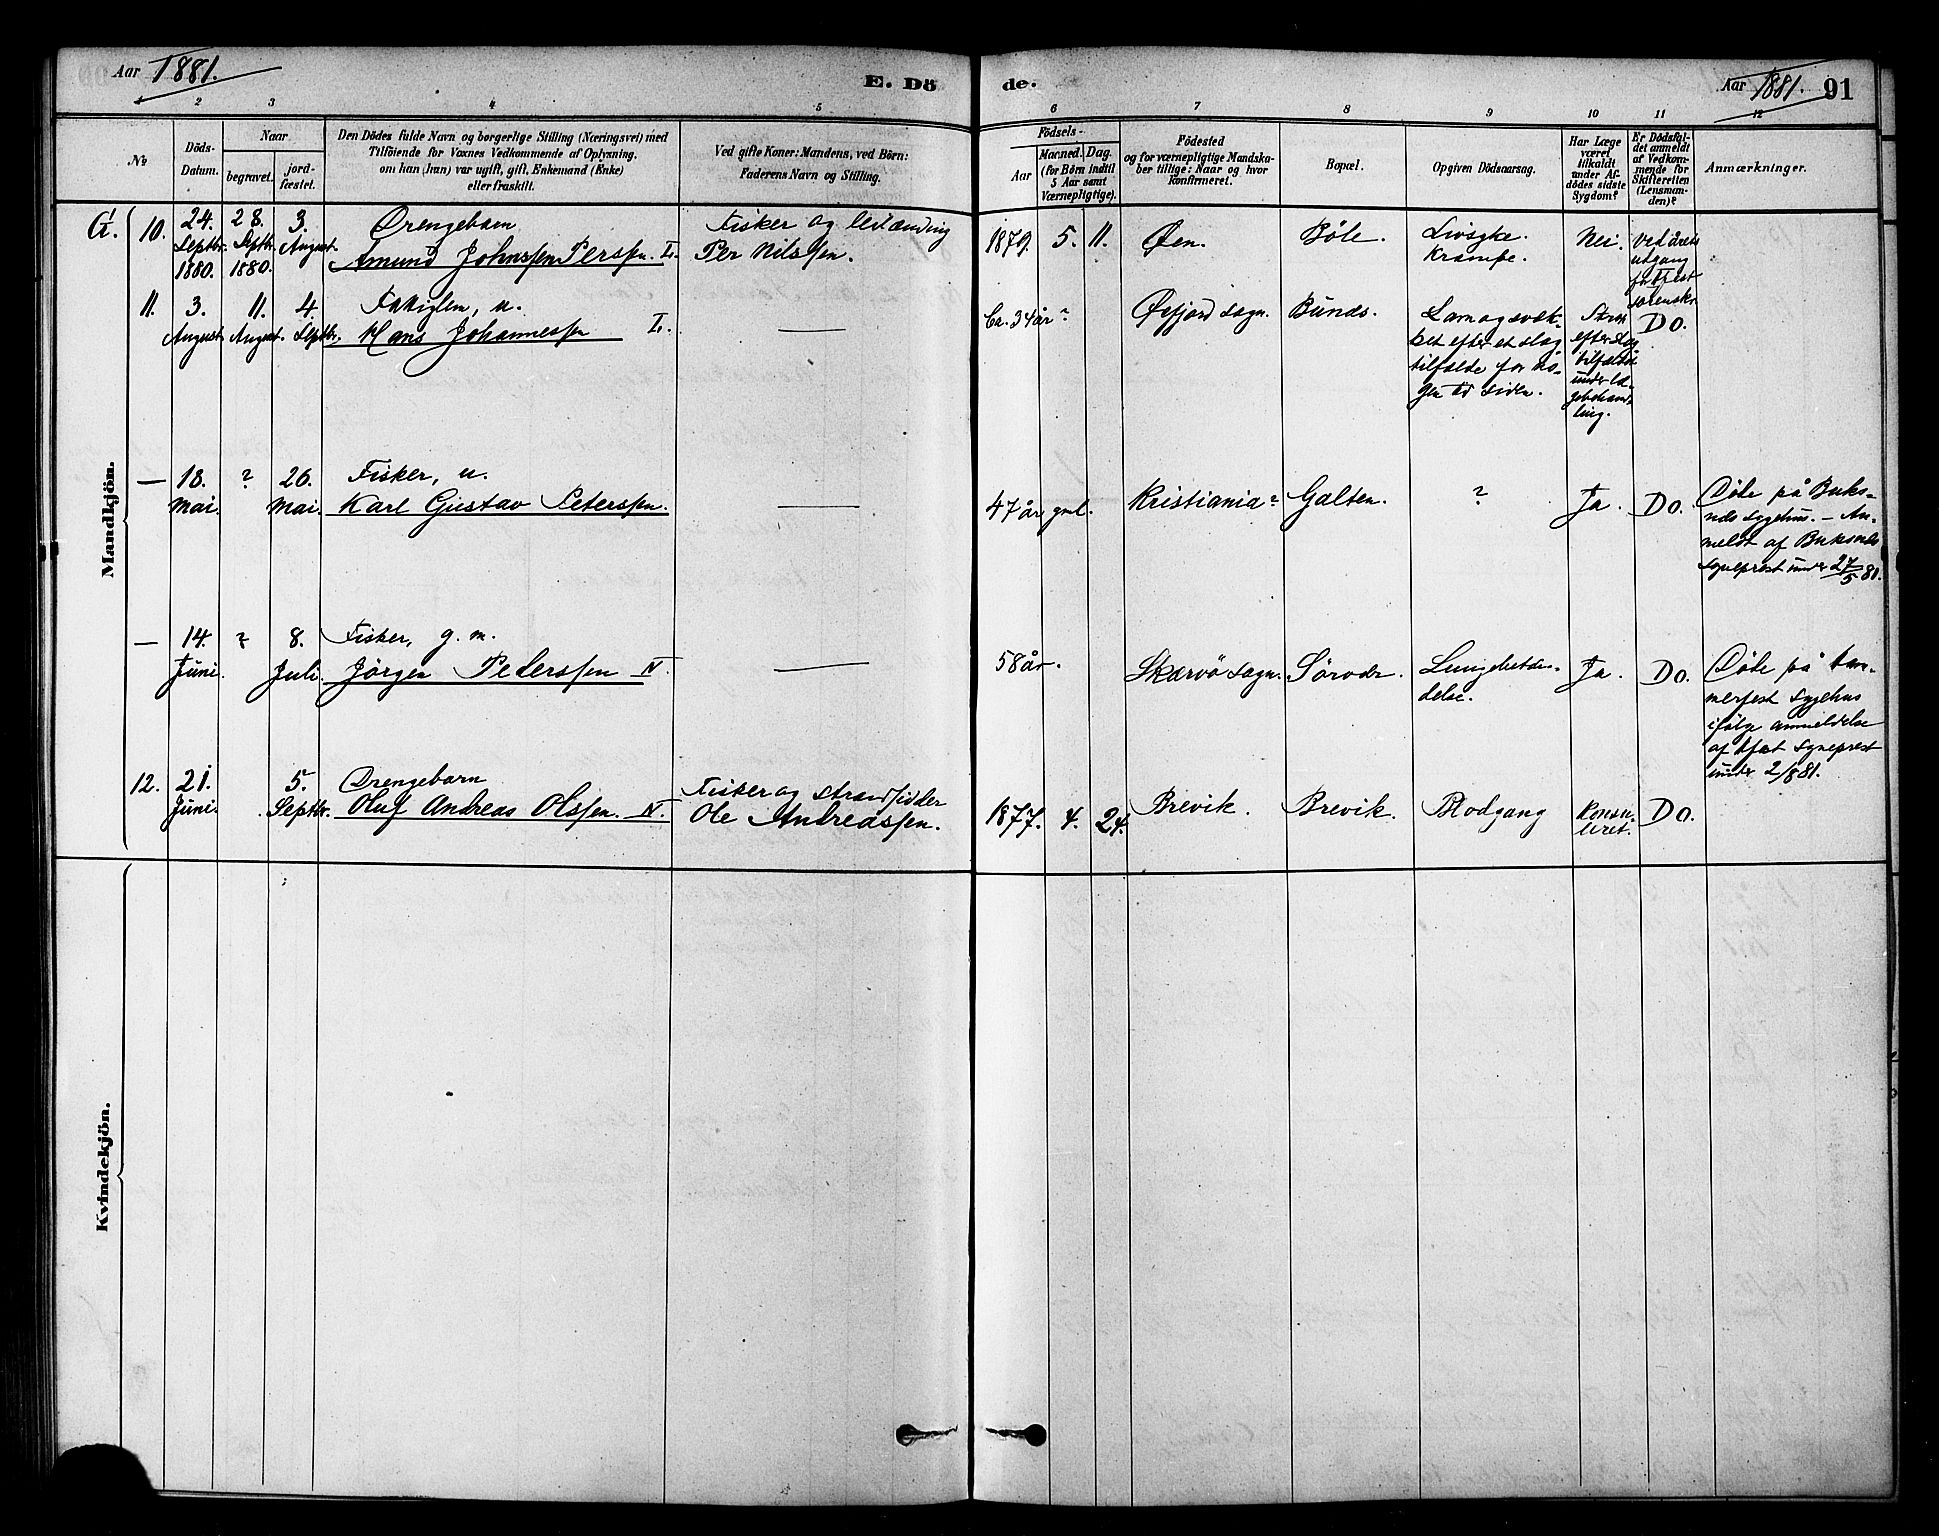 Aar 1881.
E. Dö
de.
Aar 1881. 91
2 3 4 5
6 7 8 9 10 11 12
No
Döds-
Datum.
Naar
begravet.
jord-
fæstet.
Den Dödes fulde Navn og borgerlige Stilling (Næringsvei) med
Tilföiende for Voxnes Vedkommende af Oplysning,
om han (hun) var ugift, gift, Enkemand (Enke)
eller fraskilt.
Ved gifte Koner: Mandens, ved Börn:
Faderens Navn og Stilling.
Födsels-
Aar
Maaned. Dag.
(for Börn indtil
5 Aar samt
Værnepligtige).
Födested
og for værnepligtige Mandska-
ber tillige: Naar og hvor
konfirmeret.
Bopæl.
Opgiven Dödsaarsag.
Har Læge
været
tilkaldt
under Af-
dödes sidste
Sygdom?
Er Dödsfal-
det anmeldt
af Vedkom-
mende for
Skifteretten
(Lensman-
den)?
Anmærkninger.
Mandkjön.
10.
24.
Septbr.
1880.
28.
Septbr.
1880.
3.
August.
Drengebarn
Amund Johnssen Perssen.
Fisker og
Per Nilssen.
1879. 5. 11.
Øen.
Bøle.
Livsyke.
Krampe.
Nei.
Ved årets
utgang
11.
3.
August.
11.
August.
4.
Septbr.
u.
Hans Johannessen
—
Ca. 34 år ?
Øxfjord sogn.
Bunds.
ket efter et slag
tilfælde for no-
gen tid siden.
efter slag
tilfældet
under læ-
gebehand-
ling.
Do.
—
18.
Mai.
?
26.
Mai.
Fisker, u.
Karl Gustav Peterssen.
—
47 år gml.
Kristiania?
Galten.
?
Ja.
Do.
Døde på Buks-
nes sygehus. – An-
meldt af Buksnes
sogneprest under 27/5 81.
—
14.
Juni.
?
8.
Juli.
Fisker, g. m.
Jørgen Pederssen
—
58 år.
Skærvø sogn.
Sørvær.
Lungebetæn-
delse.
Ja.
Do.
Døde på Ham-
merfest sygehus
ifølge anmeldelse
af Hfest sogneprest
under
12.
21.
Juni.
5.
Septbr.
Drengebarn
Oluf Andreas Olssen.
Fisker og strandsidder
Ole Andreassen.
1877. 4. 24.
Brevik.
Brevik.
Blodgang
Konsu-
leret.
Do.
Kvindekjön.